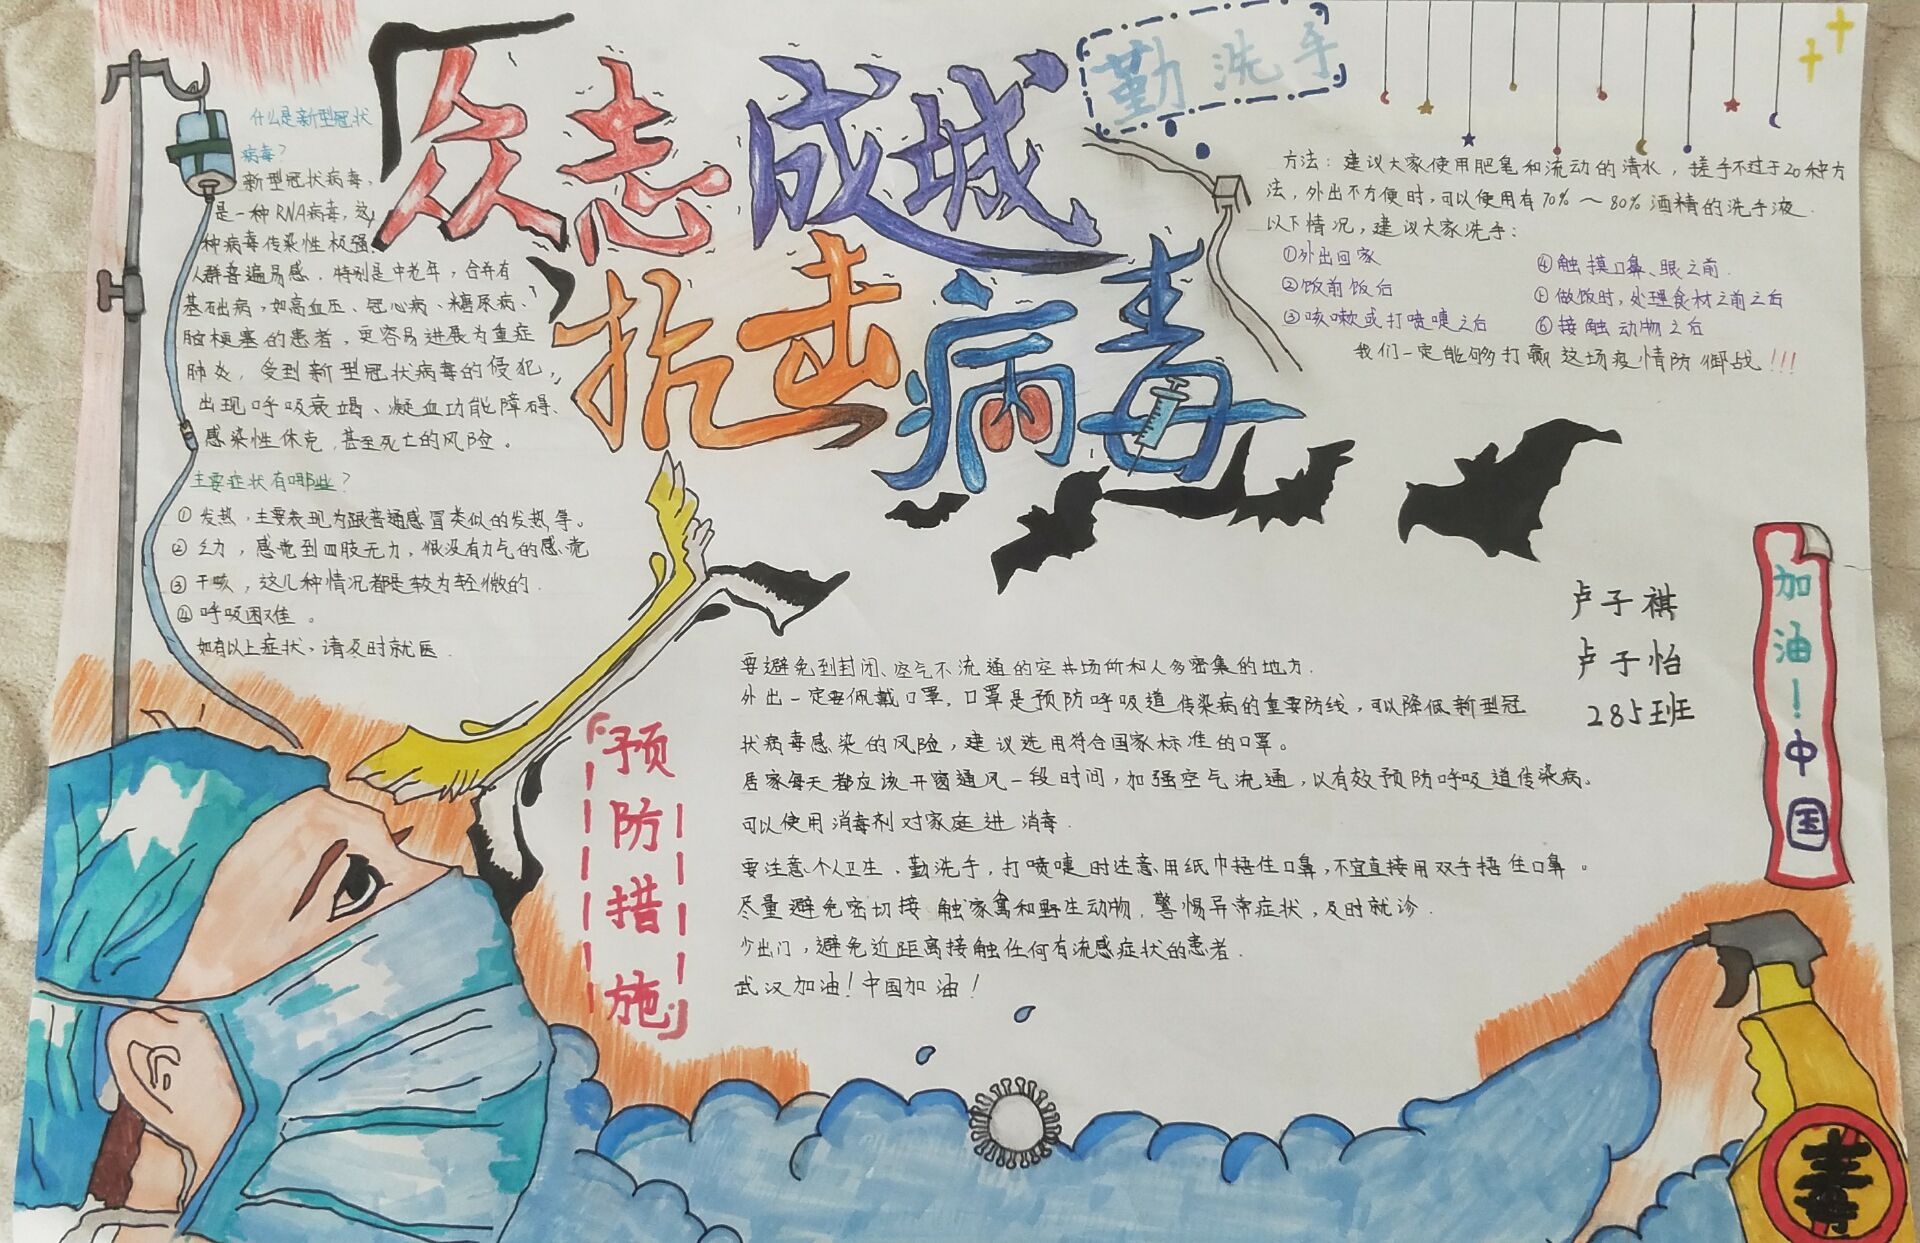 众志成城
抗击病毒
勤洗手
什么是新型冠状
病毒?
新型冠状病毒,
是一种RNA病毒,这
种病毒传染性极强.
人群普遍易感.特别是中老年,合并有
基础病,如高血压、冠心病、糖尿病、
脑梗塞的患者,更容易进展为重症
肺炎,受到新型冠状病毒的侵犯,
出现呼吸衰竭、凝血功能障碍、
感染性休克,甚至死亡的风险。
主要症状有哪些?
①发热,主要表现为跟普通感冒类似的发热等。
②乏力,感觉到四肢无力,很没有力气的感觉
③干咳,这几种情况都是较为轻微的.
④呼吸困难。
如有以上症状,请及时就医.
方法:建议大家使用肥皂和流动的清水,搓手不过于20种方
法,外出不方便时,可以使用有70%~80%酒精的洗手液.
以下情况,建议大家洗手:
①外出回家
②饭前饭后
③咳嗽或打喷嚏之后
④触摸口鼻、眼之前.
做饭时,处理食材之前之后
⑥接触动物之后
我们一定能够打赢这场疫情防御战!!!
卢子祺
卢子怡
285班
加油!中国
预防措施
要避免到封闭、空气不流通的空共场所和人多密集的地方.
外出一定要佩戴口罩,口罩是预防呼吸道传染病的重要防线,可以降低新型冠
状病毒感染的风险,建议选用符合国家标准的口罩。
居家每天都应该开窗通风一段时间,加强空气流通,以有效预防呼吸道传染病。
可以使用消毒剂对家庭进消毒.
要注意个人卫生、勤洗手,打喷嚏时注意用纸巾捂住口鼻,不宜直接用双手捂住口鼻。
尽量避免密切接触家禽和野生动物,警惕异常症状,及时就诊.
少出门,避免近距离接触任何有流感症状的患者.
武汉加油!中国加油!
毒